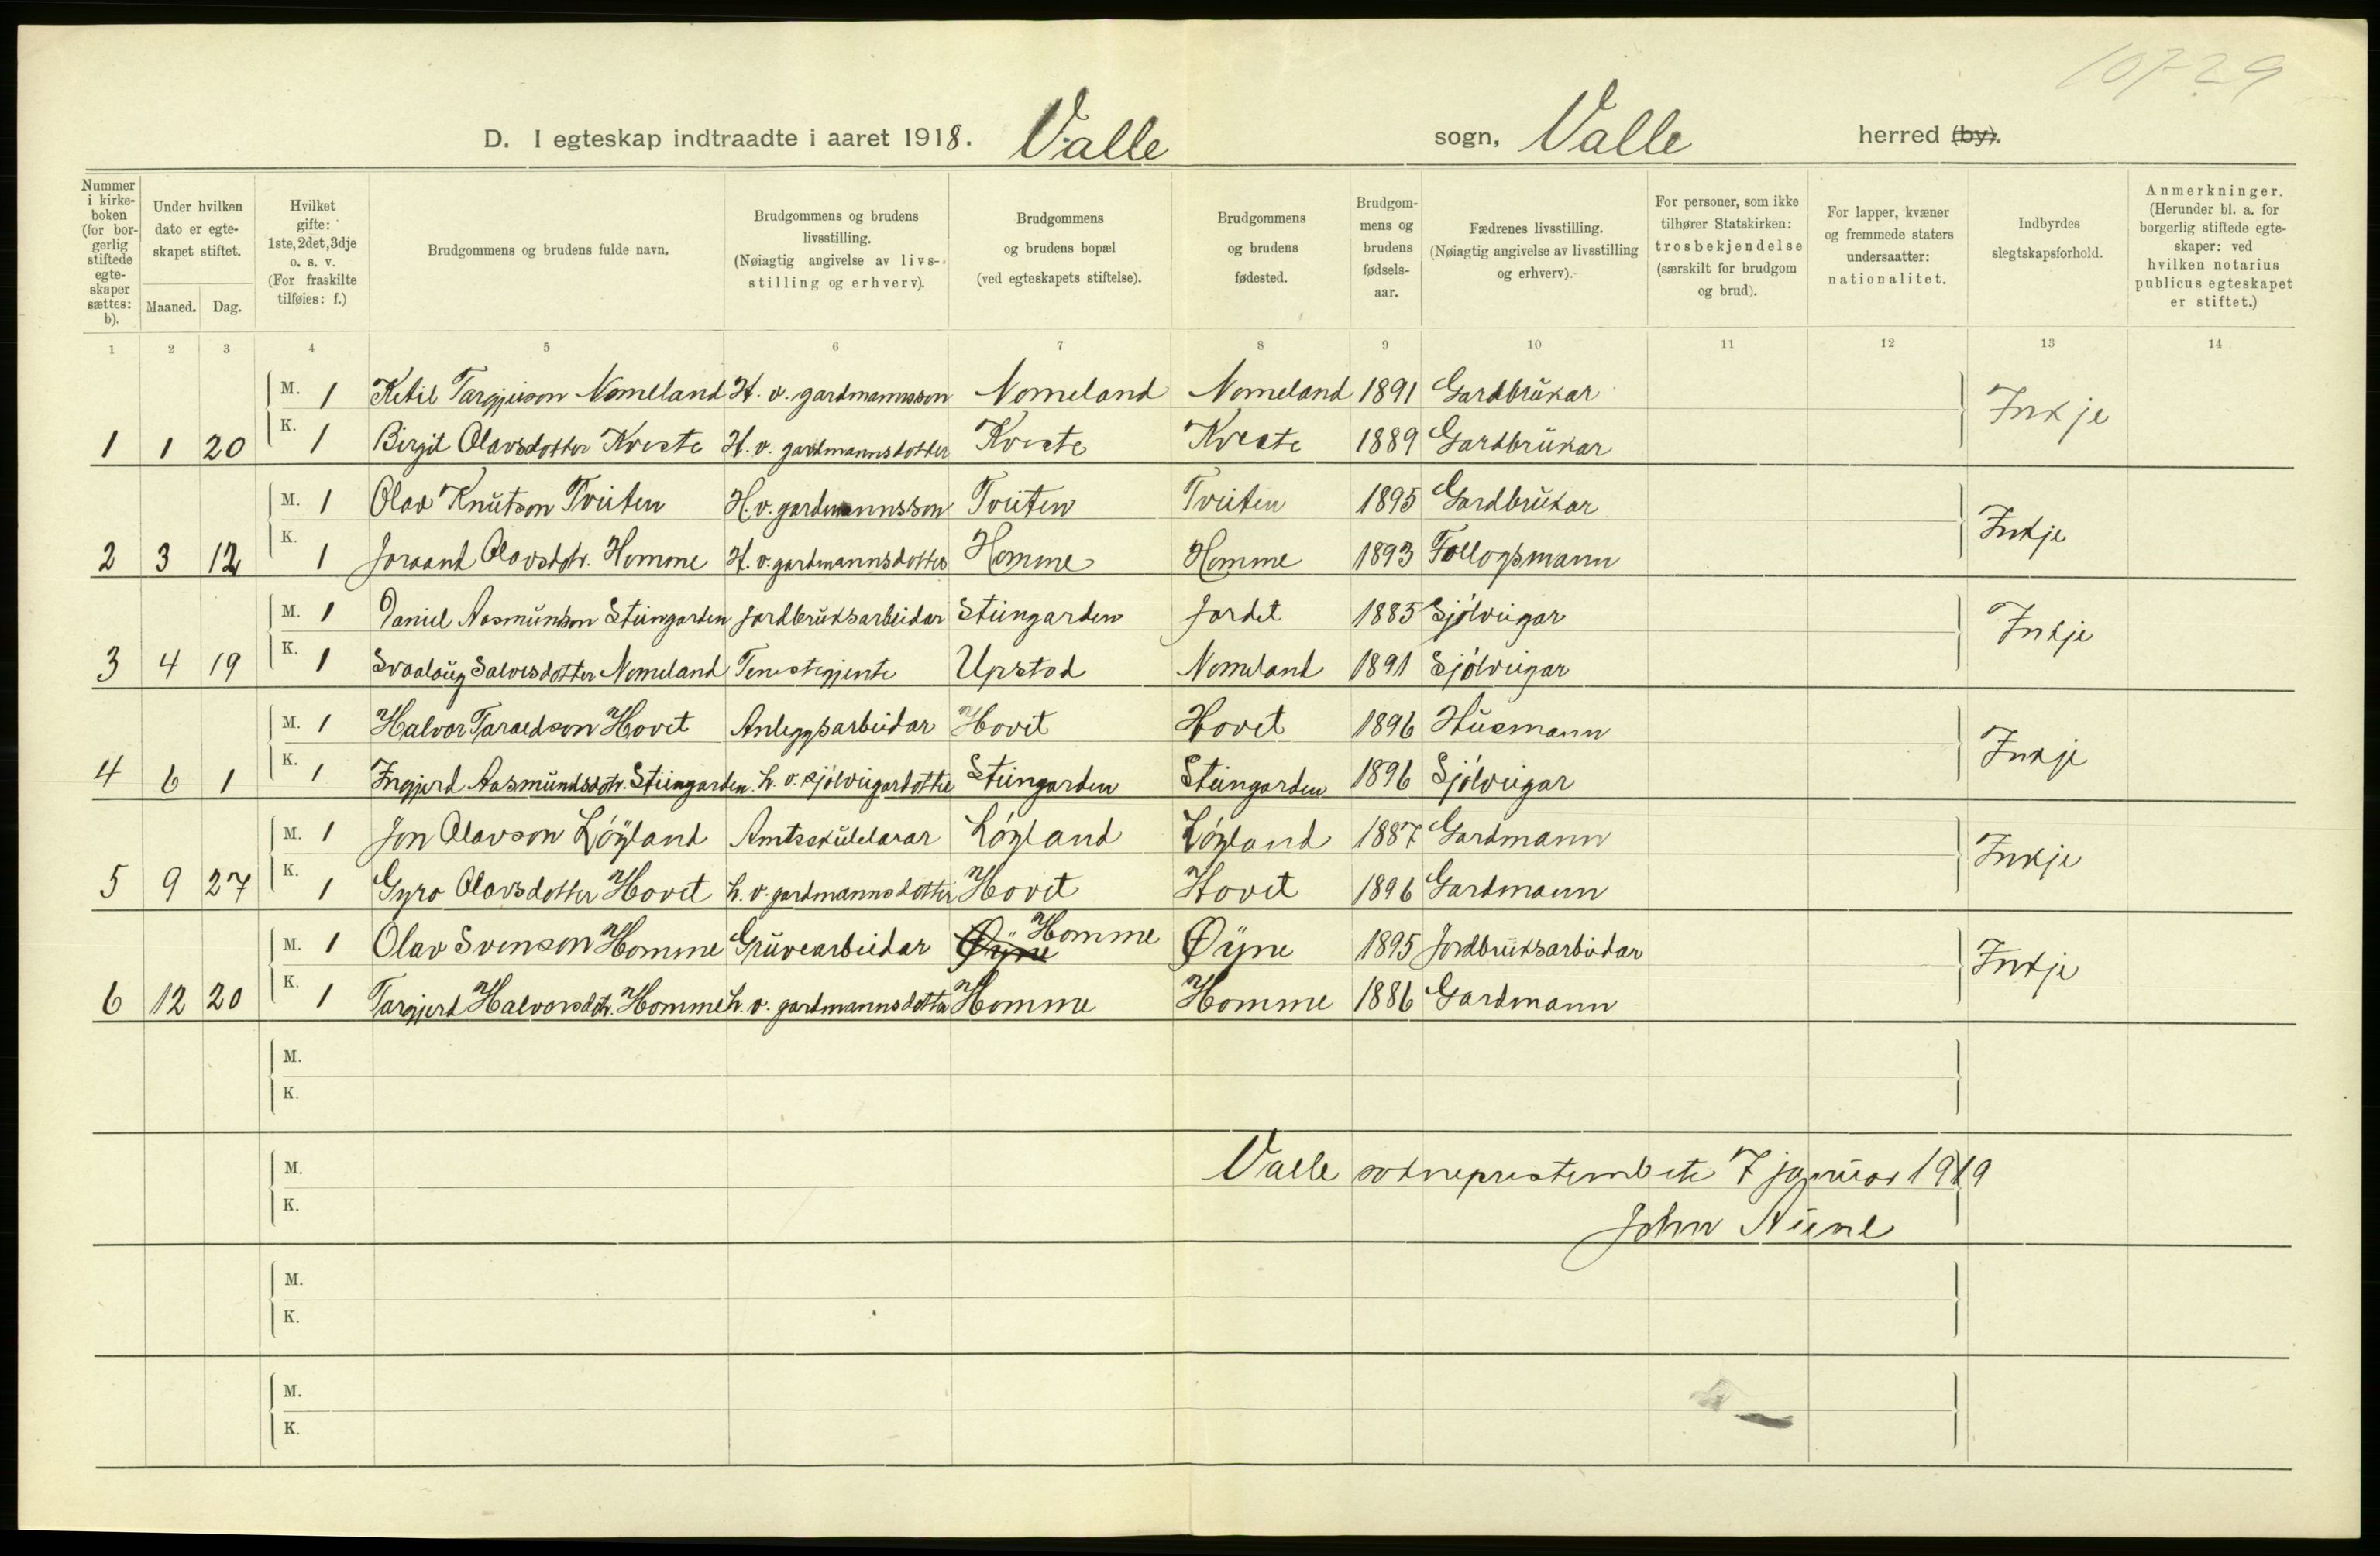 107-29
D. I egteskap indtraadte i aaret 1918. Valle sogn, Valle herred (by).
Nummer i kirke-boken (for bor-gerlig stiftede egte-skaper sættes: b).
Under hvilken dato er egte-skapet stiftet.
Maaned. Dag.
Hvilket gifte: 1ste, 2det, 3dje o. s. v. (For fraskilte tilføies: f.)
Brudgommens og brudens fulde navn.
Brudgommens og brudens livsstilling. (Nøiagtig angivelse av livs-stilling og erhverv).
Brudgommens og brudens bopæl (ved egteskapets stiftelse).
Brudgommens og brudens fødested.
Brudgom-mens og brudens fødsels-aar.
Fædrenes livsstilling. (Nøiagtig angivelse av livsstilling og erhverv).
For personer, som ikke tilhører Statskirken: trosbekjendelse (særskilt for brudgom og brud).
For lapper, kvæner og fremmede staters undersaatter: nationalitet.
Indbyrdes slegtskapsforhold.
Anmerkninger. (Herunder bl. a. for borgerlig stiftede egte-skaper: ved hvilken notarius publicus egteskapet er stiftet.)
1 2 3 4 5 6 7 8 9 10 11 12 13 14
M. 1 Ketil Targjeison Nomeland H. v. gardmannsson Nomeland Nomeland 1891 Gardbrukar Inkje
1 1 20 K. 1 Birgit Olavsdotter Kveste H. v. gardmannsdotter Kveste Kveste 1889 Gardbrukar
M. 1 Olav Knutson Tveiten H. v. gardmannsson Tveiten Tveiten 1895 Gardbrukar Inkje
2 3 12 K. 1 Joraand Olavsdtr. Homme H. v. gardmannsdotter Homme Homme 1893 Follogsmann
M. 1 Daniel Aasmundson Steingarden Jordbruksarbeidar Steingarden Jordet 1885 Sjölveigar Inkje
3 4 19 K. 1 Svaalaug Salvesdotter Nomeland Tenestegjente Upstad Nomeland 1891 Sjölveigar
M. 1 Halvor Taraldson Hovet Anleggsarbeidar Hovet Hovet 1896 Husmann Inkje
4 6 1 K. 1 Ingjerd Aasmundsdtr. Steingarden h. v. sjölveigardotter Steingarden Steingarden 1896 Sjölveigar
M. 1 Jon Olavson Löyland Amtsskulelærar Löyland Löyland 1887 Gardmann Inkje
5 9 27 K. 1 Gyro Olavsdotter Hovet h. v. gardmannsdotter Hovet Hovet 1896 Gardmann
M. 1 Olav Svenson Homme Gruvearbeidar Øyne Homme Øyne 1895 Jordbruksarbeidar Inkje
6 12 20 K. 1 Targjerd Halvorsdtr. Homme h. v. gardmannsdotter Homme Homme 1886 Gardmann
M.
K.
M. Valle sokneprestembete 7 januar 1919
K. John
M.
K.
M.
K.